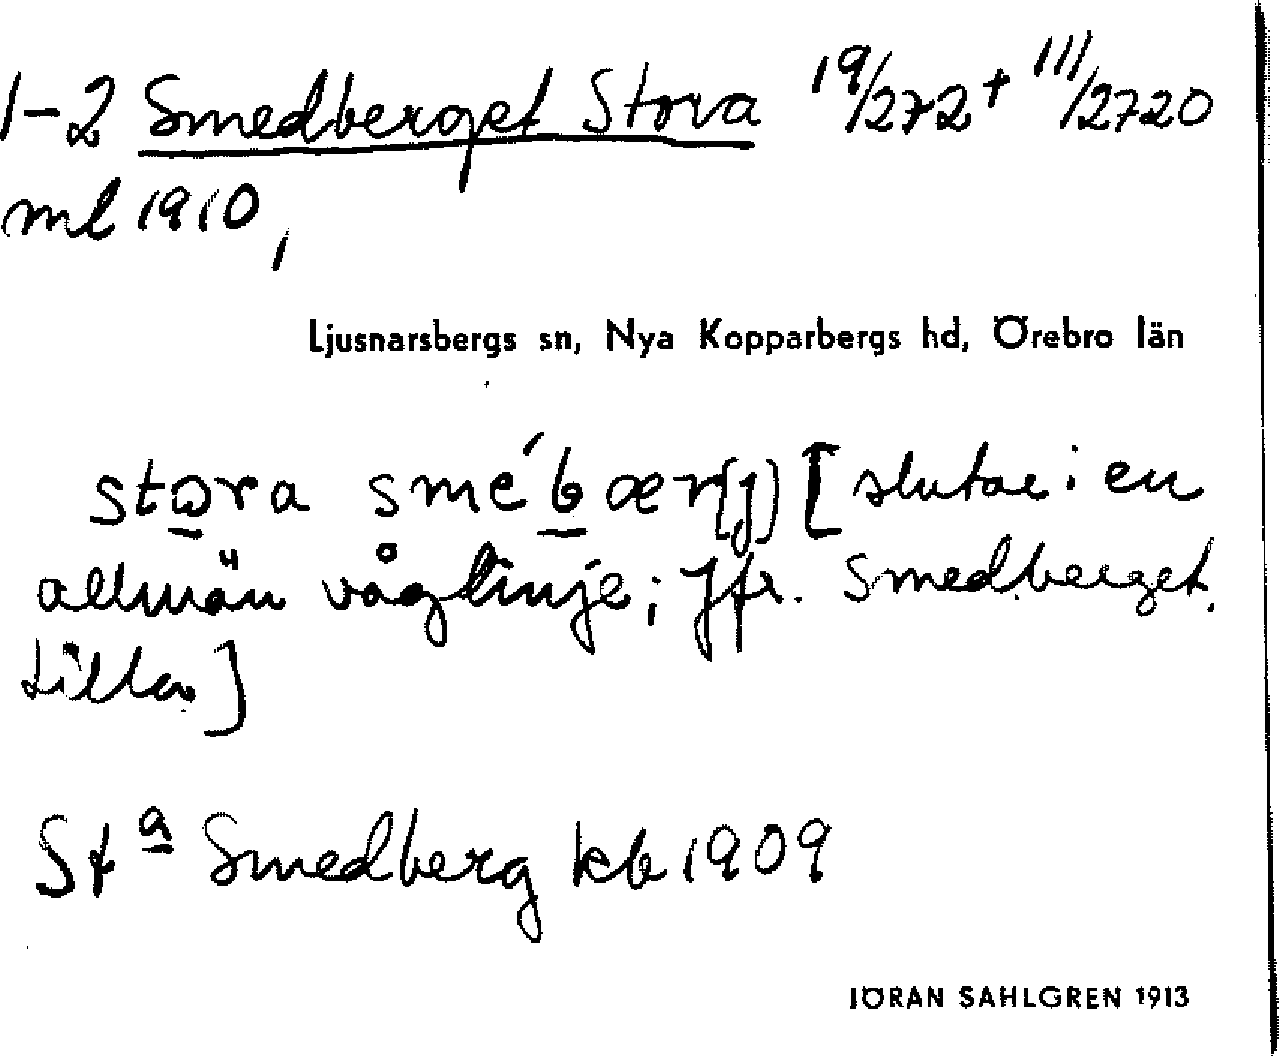 1-2 Smedberget Stora 19/272 + 111/2720
ml 1910,
Ljusnarsbergs sn, Nya Kopparbergs hd, Örebro län
stora smé'bær(j) [slutar i en
allmän våglinje; Jfr. Smedberget,
Lilla.]
St<sup>a</sup> Smedberg kb 1909
JÖRAN SAHLGREN 1913